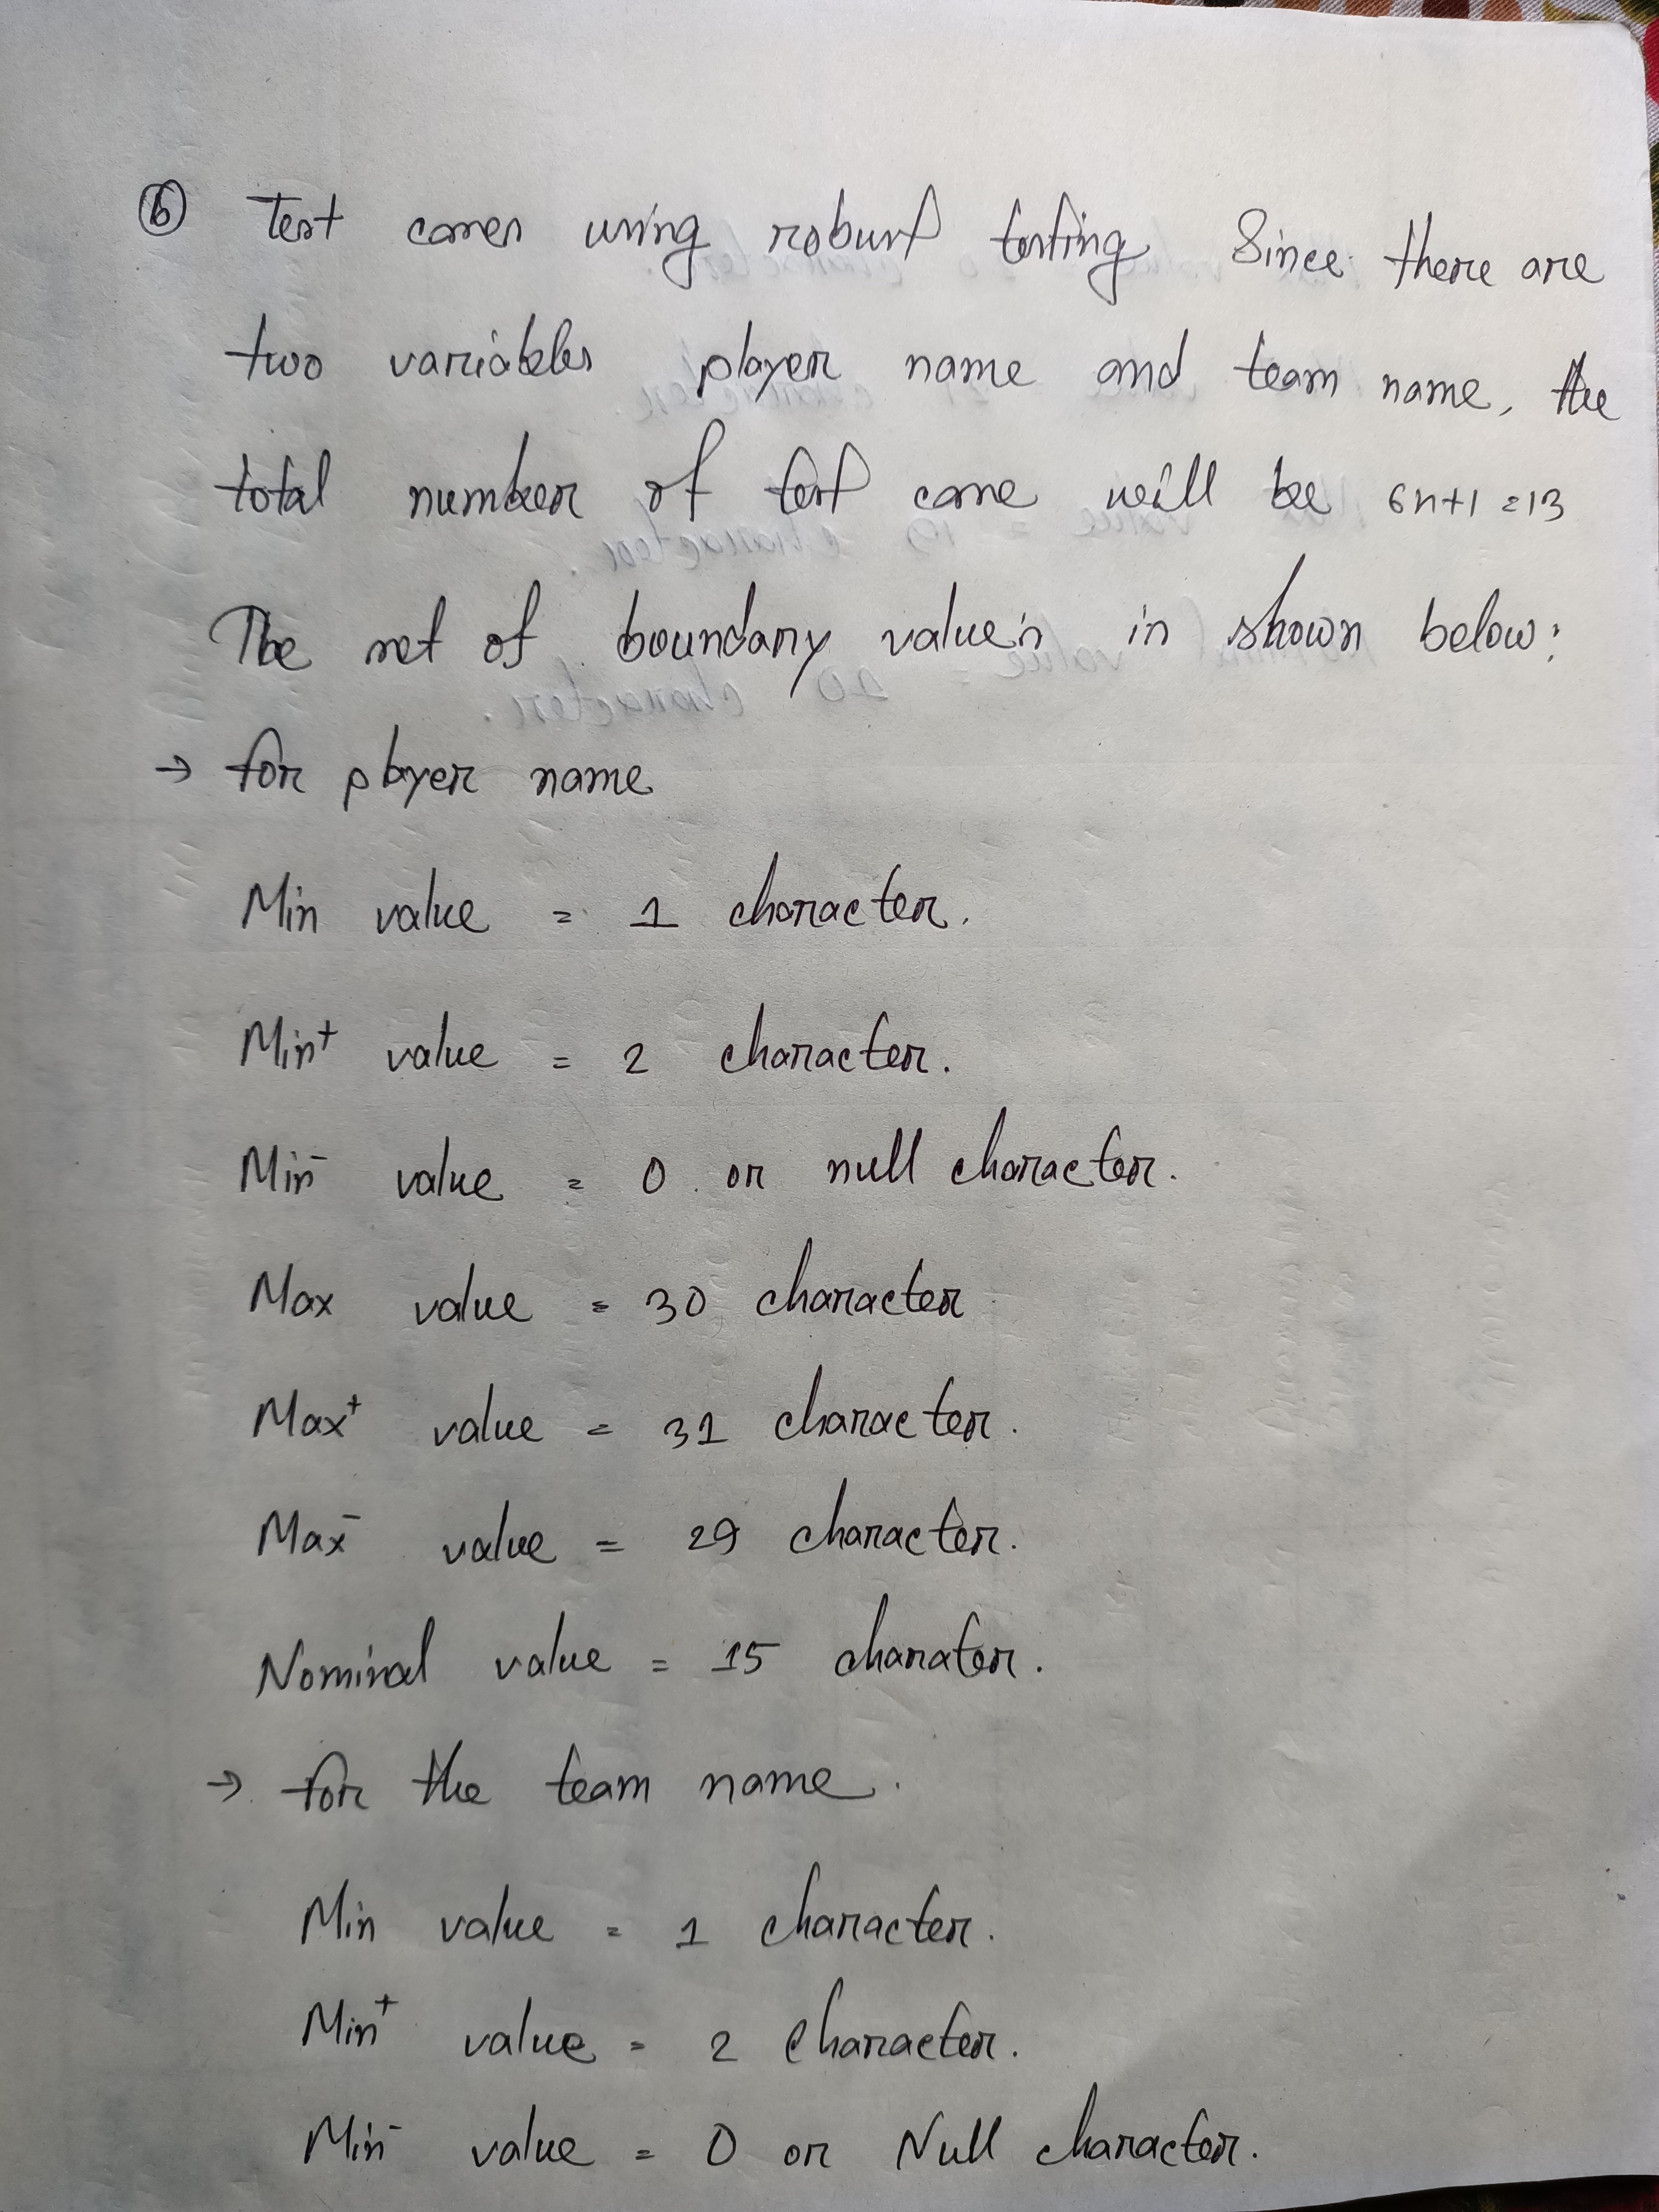 (b) Test cases using robust testing Since there are
two variables player name and team name, the
total number of test case will be 6n+1 = 13
The set of boundary value's is shown below:
→ for player name
Min value = 1 character.
Min⁺ value = 2 character.
Min⁻ value = 0 or null character.
Max value = 30 character
Max⁺ value = 31 character.
Max⁻ value = 29 character.
Nominal value = 15 charater.
→ for the team name.
Min value = 1 character.
Min⁺ value = 2 character.
Min⁻ value = 0 or Null character.